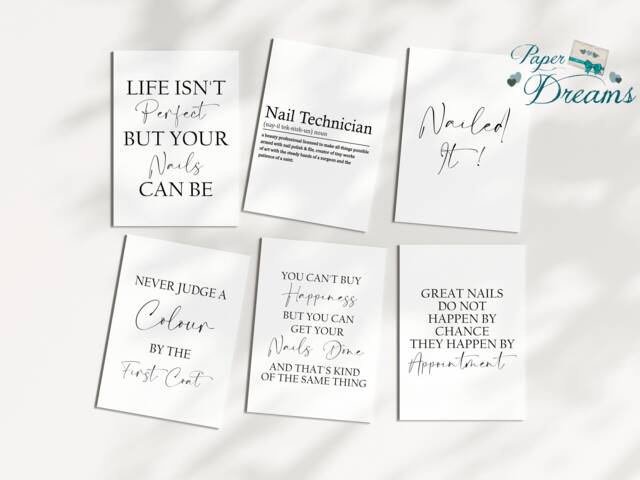 Paper
Dreams
LIFE ISN'T
Perfect
BUT YOUR
Nails
CAN BE
Nail Technician
(nay-il tek-nish-un) noun
a beauty professional licensed to make all things possible
armed with nail polish & file, creator of tiny works
of art with the steady hands of a surgeon and the
patience of a saint.
Nailed
It !
NEVER JUDGE A
Colour
BY THE
First Coat
YOU CAN'T BUY
Happiness
BUT YOU CAN
GET YOUR
Nails Done
AND THAT'S KIND
OF THE SAME THING
GREAT NAILS
DO NOT
HAPPEN BY
CHANCE
THEY HAPPEN BY
Appointment